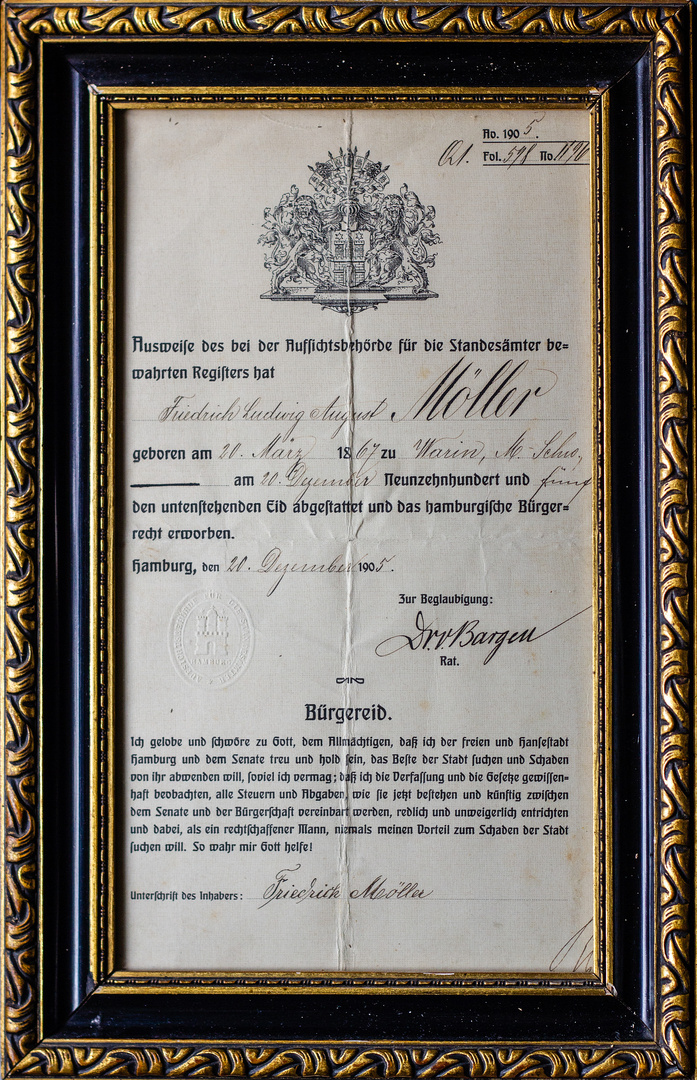 Ao. 1905.
A1. Fol. 598 No.
Ausweise des bei der Aufsichtsbehörde für die Standesämter be=
wahrten Registers hat
Friedrich Ludwig August Möller
geboren am 20. März 1867 zu Warin, M. Schw.,
am 20. Dezember Neunzehnhundert und fünf
den untenstehenden Eid abgestattet und das hamburgische Bürger=
recht erworben.
Hamburg, den 20. Dezember 1905.
Zur Beglaubigung:
Dr. v. Bargen
Rat.
Bürgereid.
Ich gelobe und schwöre zu Gott, dem Allmächtigen, daß ich der freien und Hansestadt
Hamburg und dem Senate treu und hold sein, das Beste der Stadt suchen und Schaden
von ihr abwenden will, soviel ich vermag; daß ich die Verfassung und die Gesetze gewissen=
haft beobachten, alle Steuern und Abgaben, wie sie jetzt bestehen und künftig zwischen
dem Senate und der Bürgerschaft vereinbart werden, redlich und unweigerlich entrichten
und dabei, als ein rechtschaffener Mann, niemals meinen Vorteil zum Schaden der Stadt
suchen will. So wahr mir Gott helfe!
Unterschrift des Inhabers: Friedrich Möller